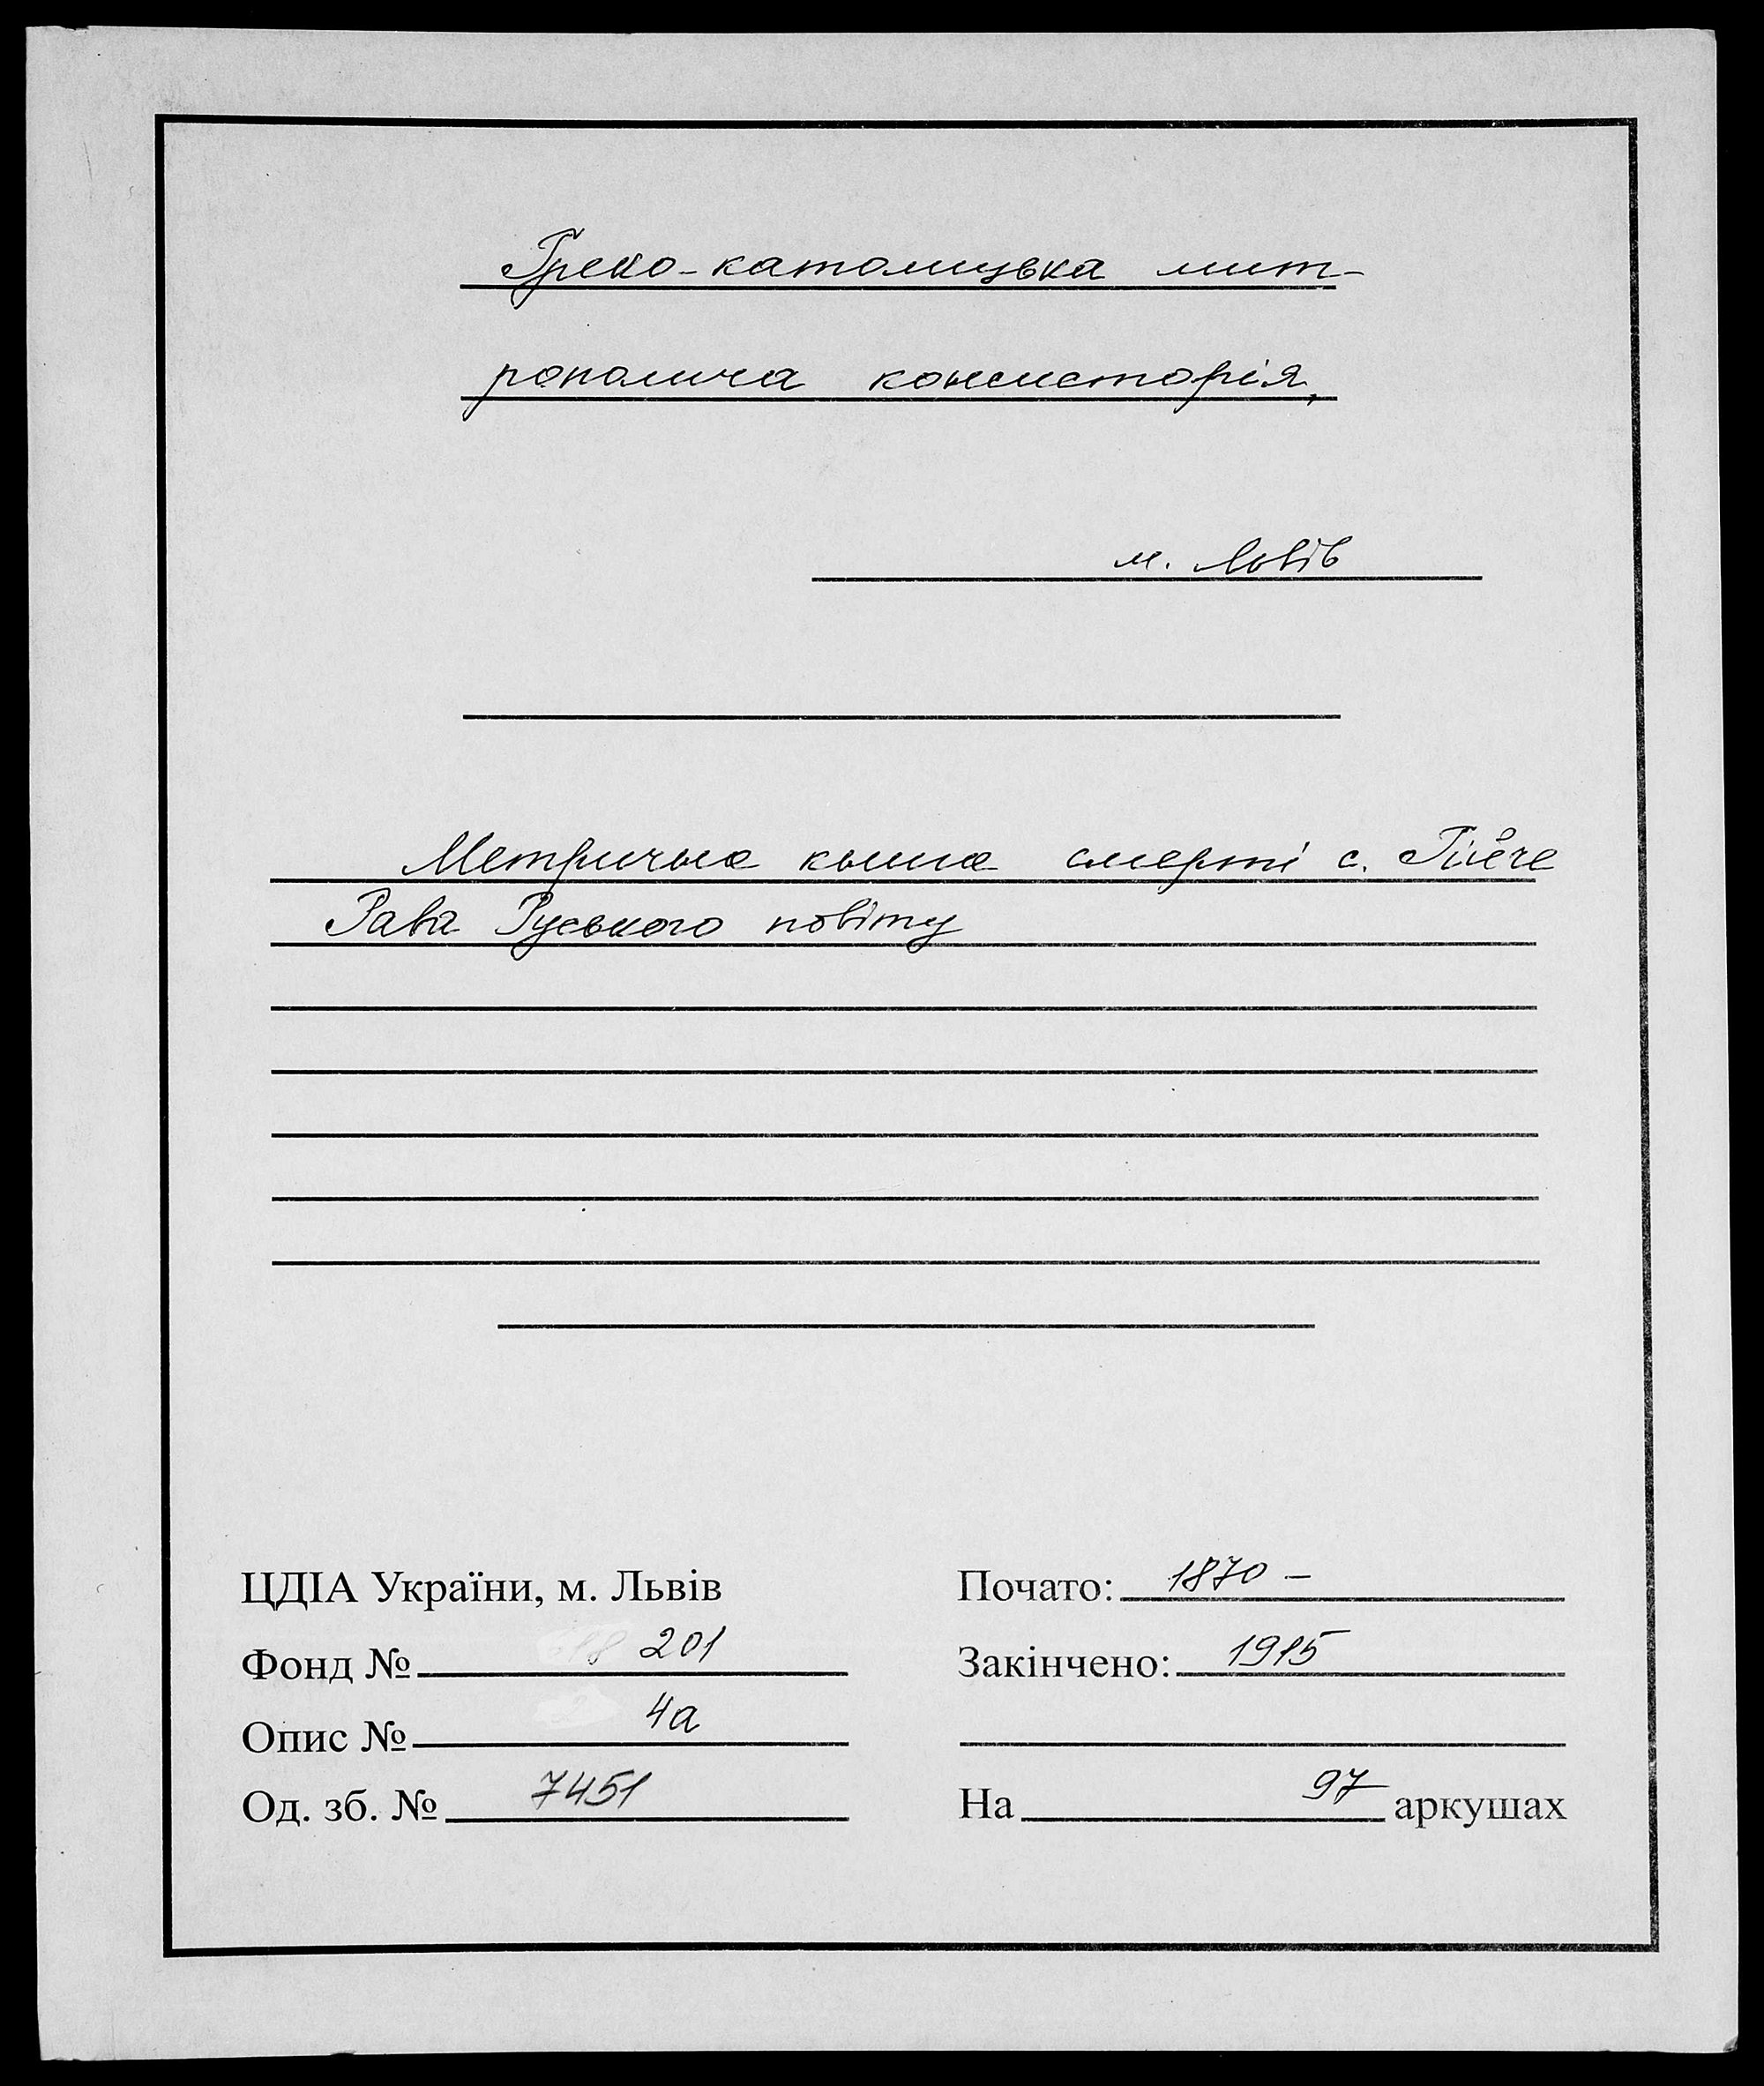 Греко-католицька мит-
рополича консисторія,
м. Львів
Метрична книга смерті с. Гійче
Рава Руського повіту
ЦДІА України, м. Львів
Почато: 1870 –
Фонд № 201
Закінчено: 1915
Опис № 4а
Од. зб. № 7451
На 97 аркушах